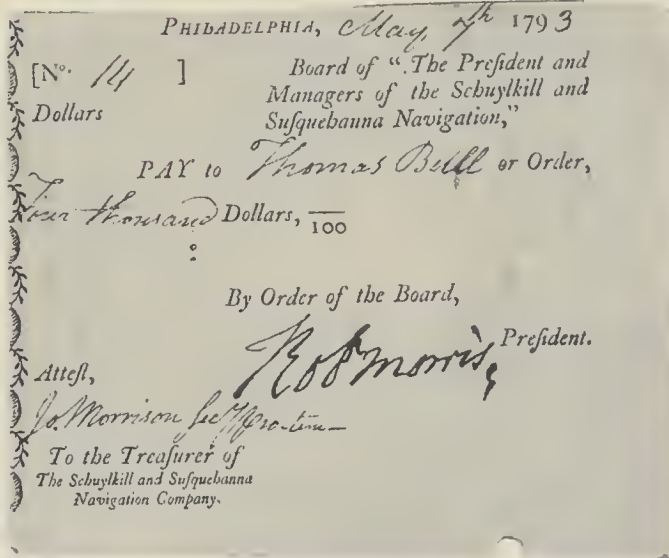 PHILADELPHIA, May, 7th 1793
[No. 14 ]
Board of “The Preſident and
Managers of the Schuylkill and
Dollars
Suſquehanna Navigation,”
PAY to Thomas Bull or Order,
Four thousand Dollars, /100
By Order of the Board,
Robt Morris, Preſident.
Atteſt,
Jo. Morrison Secy pro-tem
To the Treaſurer of
The Schuylkill and Suſquehanna
Navigation Company.